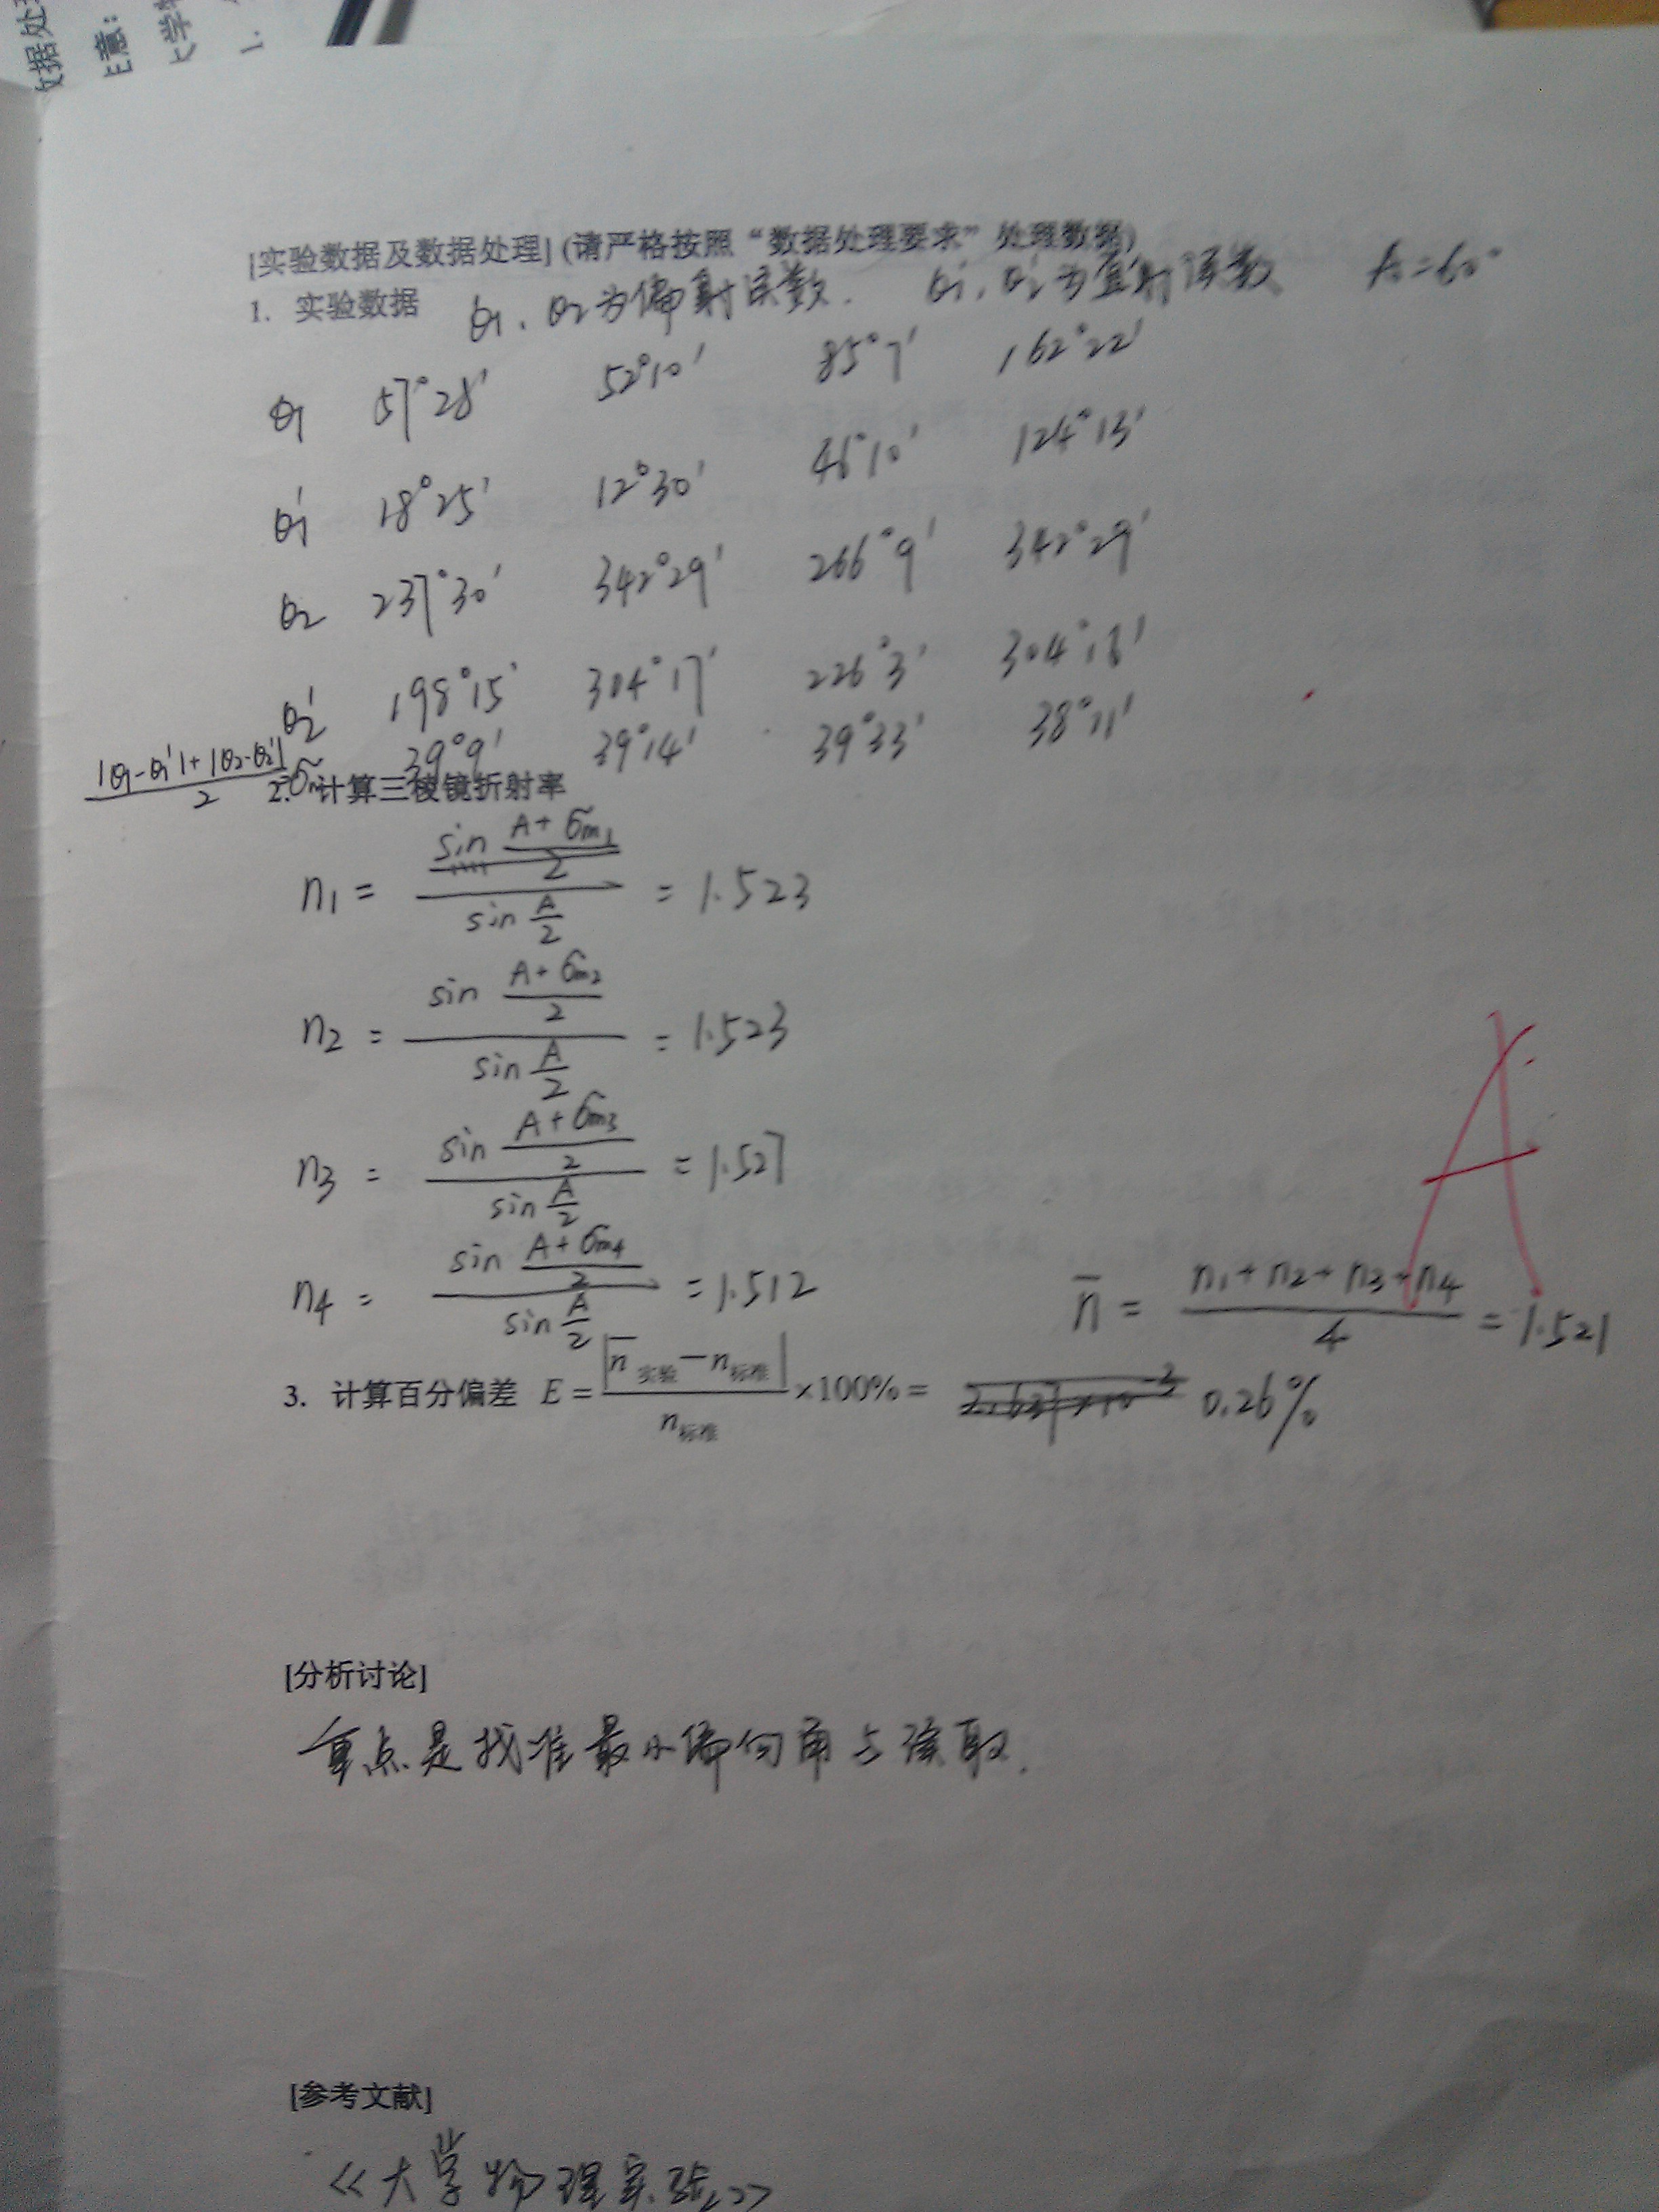 [实验数据及数据处理] (请严格按照“数据处理要求”处理数据)
1. 实验数据 θ1、θ2为偏射读数. θ1'、θ2'为直射读数 A=60°
θ1 57°28' 52°10' 85°7' 162°22'
θ1' 18°25' 12°30' 46°10' 124°13'
θ2 237°30' 342°29' 266°9' 342°29'
θ2' 198°15' 304°17' 226°3' 304°16'
|θ1-θ1'|+|θ2-θ2'| / 2 δm 39°9' 39°14' 39°33' 38°11'
2. 计算三棱镜折射率
n1 = sin (A+δm1)/2 / sin A/2 = 1.523
n2 = sin (A+δm2)/2 / sin A/2 = 1.523
n3 = sin (A+δm3)/2 / sin A/2 = 1.527
n4 = sin (A+δm4)/2 / sin A/2 = 1.512
n̄ = n1+n2+n3+n4 / 4 = 1.521
A
3. 计算百分偏差 E = |n̄实验-n标准| / n标准 ×100% = 0.26%
[分析讨论]
重点是找准最小偏向角与读取.
[参考文献]
《大学物理实验》